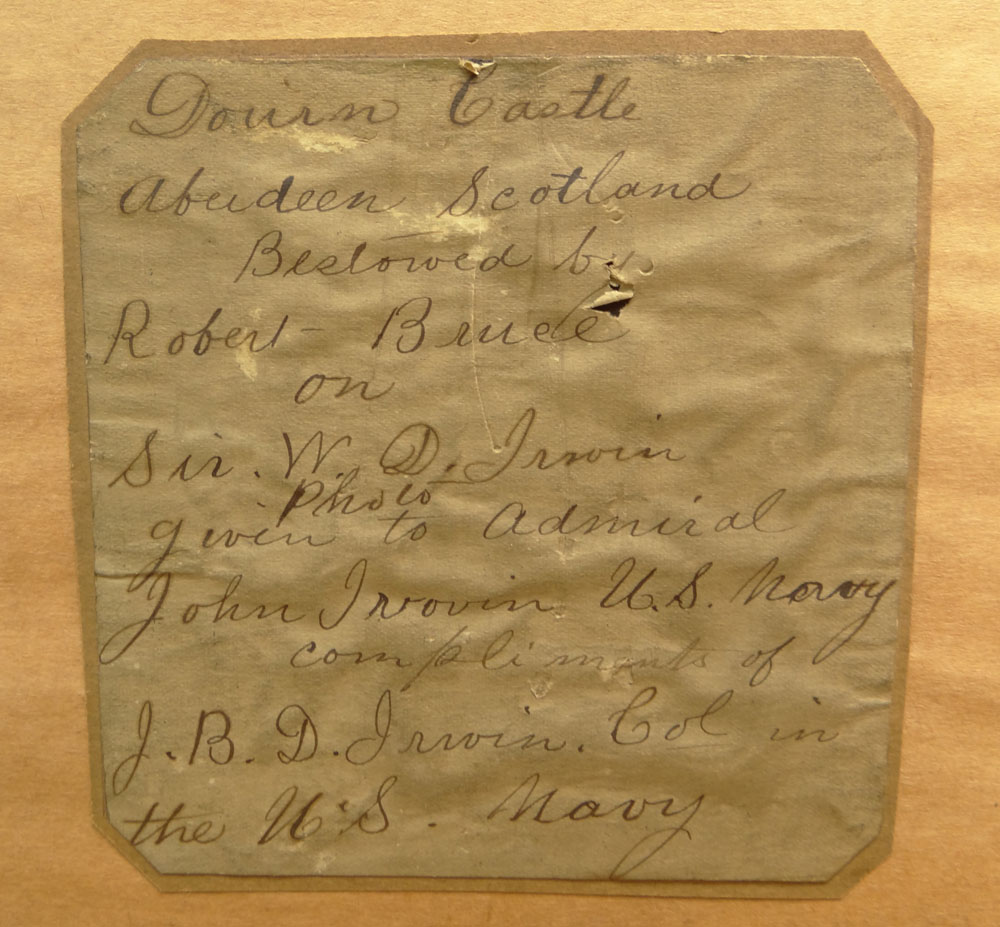 Dourn Castle
Aberdeen Scotland
Bestowed by
Robert Bruce
on
Sir. W. D. Irwin
Photo
given to Admiral
John Irvovin U.S. Navy
compliments of
J. B. D. Irwin. Col in
the U.S. Navy